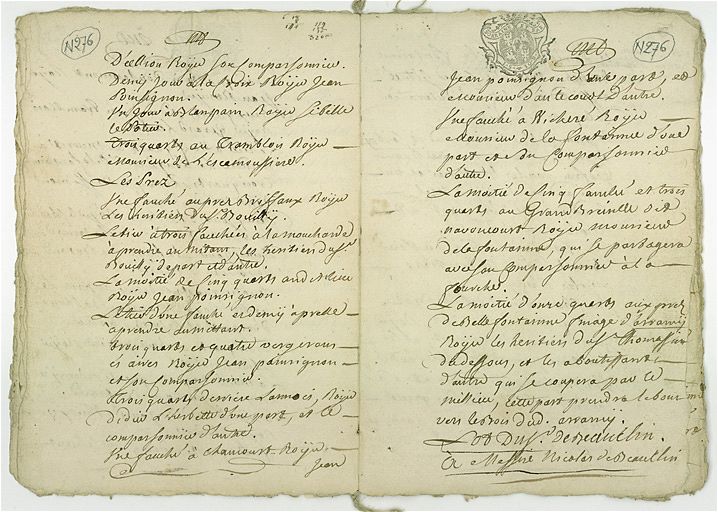 N276
D'allion Roÿe son Comparsonnier.
Demÿ Jour à la Roix Roÿe Jean
Poinsignon.
Vn Jour à Blanpain Roÿe Sibelle
le Potier.
Trois quarts au Tramblois Roÿe
Monsieur de Lescamoussiere.
Les Prez
Vne fauché au prez Brissaux Roÿe
Les heritiers du Sr. Bouillÿ.
Le tier à trois fauchées à la mouchorde
à prendre au mitan, les heritiers du Sr.
Bouillÿ de part et d'autre.
La moitié de Cinq quarts
Roÿe Jean poinsignon.
Le tier d'une fauché et demÿ à prelle
à prendre au mittant.
trois quarts et quatre verge
Roÿe Jean poinsignon
et son Comparsonnié.
Trois quarts derriere Lamois, Roÿe
Didier L'herbette d'une part, et le
comparsonnié d'autre.
Vne fauché à Chamourt Roÿe
Jean
N276
Jean poinsignon d'une part, et
Monsieur d'autecourt D'autre.
Vne fauché à Vicheré Roÿe
Monsieur de la fontanne d'une
part et du Comparsonnié
d'autre.
La moitié de Cinq fauché et trois
quarts au Grand Breüille dit
navoncourt Roÿe monsieur
de la fontanne, qui se partagera
avec son Comparsonnié à la
fourche.
La moitié d'onze quarts aux prez
de Belle fontanne finage d'arramÿ
Roÿe les heritiers du Sr. Thomassin
de dessous, et les aboutissant
d'autre qui se coupera par le
millieu, cette part prendra le bout
vers le bois dud. arramÿ.
Lot Du Sr. de Beaullin.
A Messire Nicolas de Beaullin